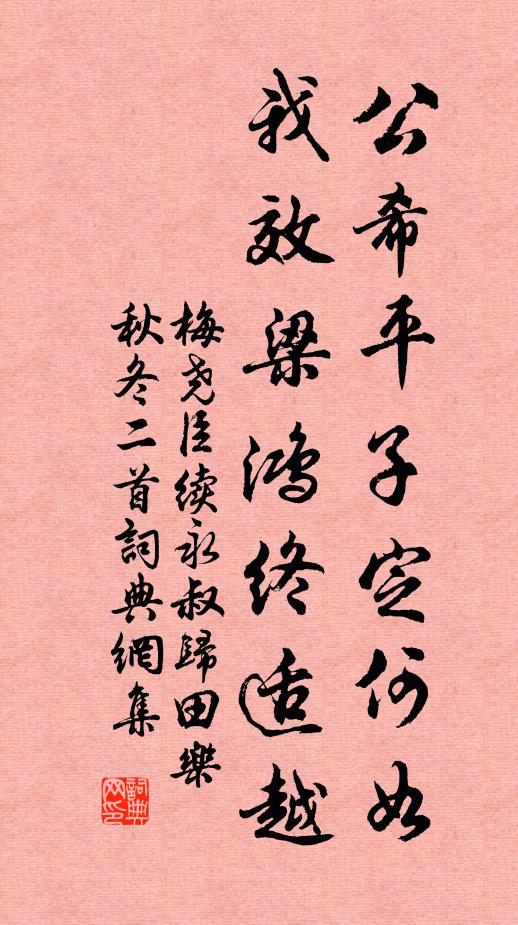 公希平子定何如
我效梁鸿终适越
梅尧臣续永叔歸田樂
秋冬二首詞典網集
詞典
网印